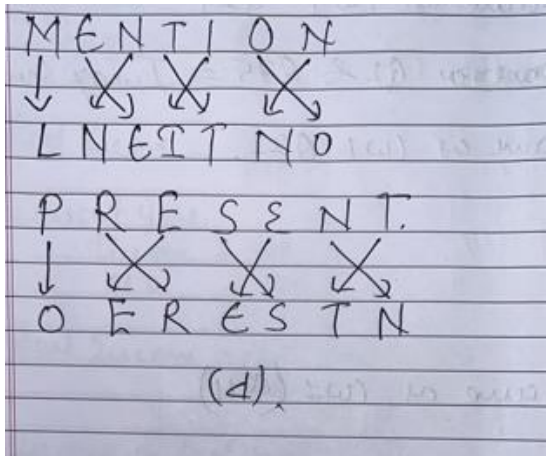 MENTION
LNEITNO
PRESENT.
OERESTN
(d).